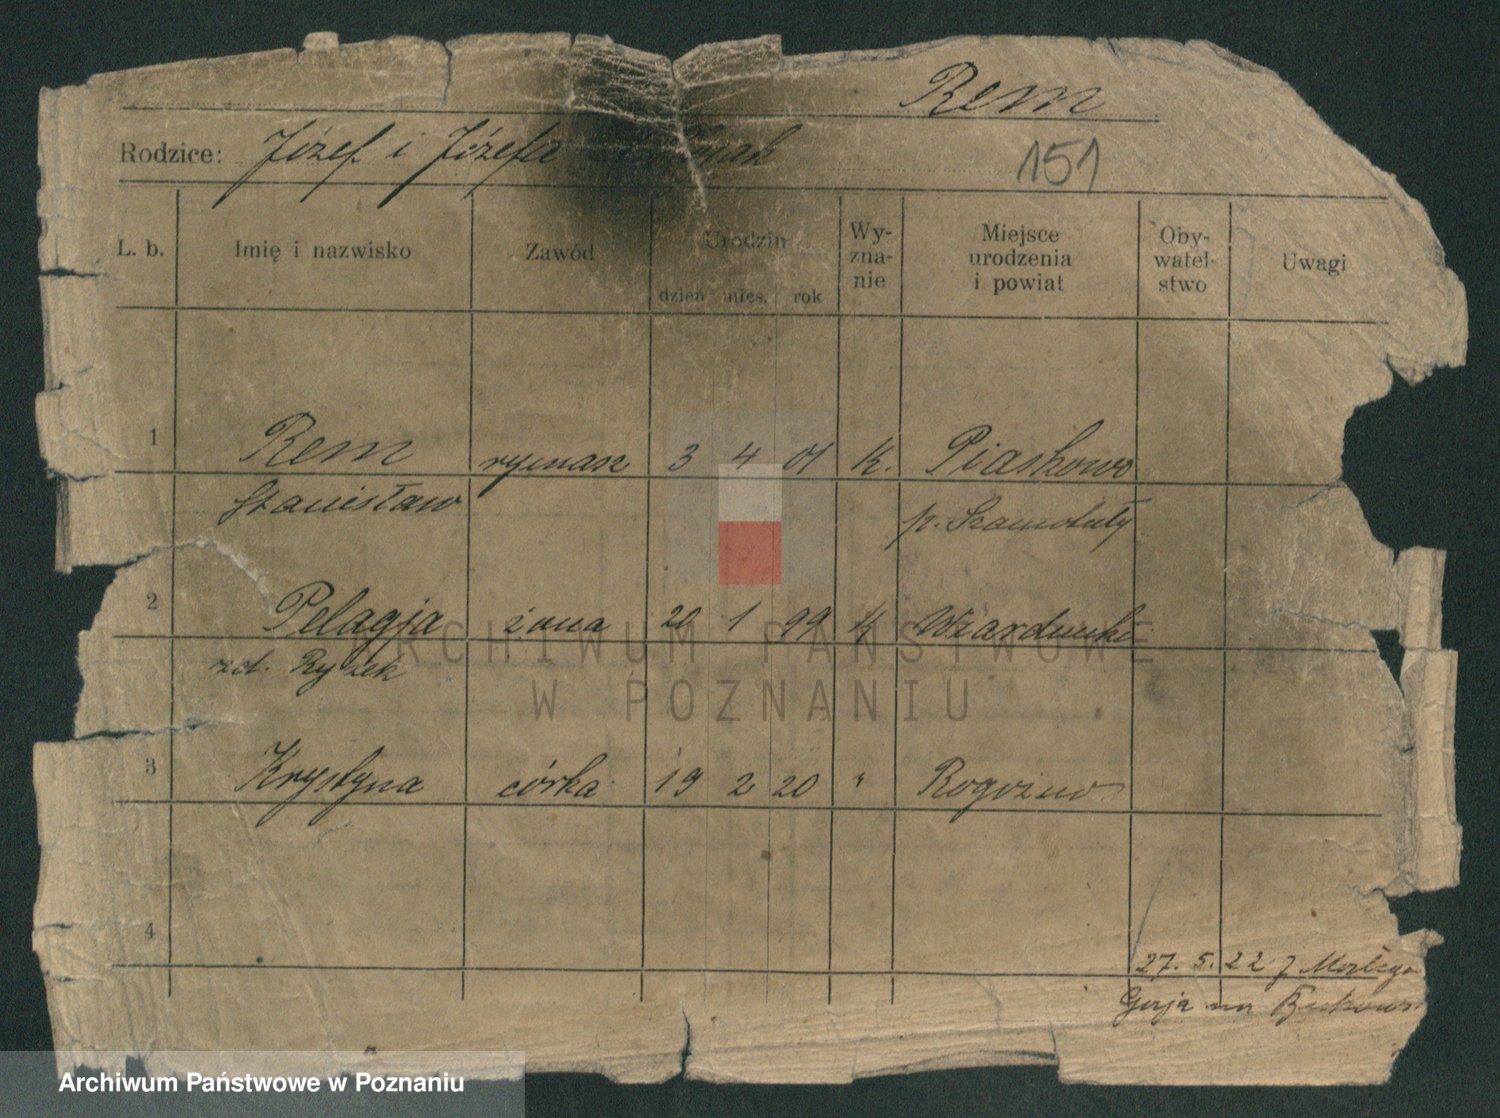 Rem
Rodzice: Józef i Józefa
151
L. b. Imię i nazwisko Zawód Urodzin Wy- Miejsce Oby- Uwagi
zna- urodzenia watel-
nie i powiat stwo
dzień mies. rok
1 Rem rymarz 3 4 01 k. Piaskowo
Stanisław p. Szamotuły
2 Pelagja żona 20 1 99 k
zd. Ryżek
3 Krystyna córka 19 2 20 " Rogoźno
4
27. 5. 22 J
na
ARCHIWUM PAŃSTWOWE
W POZNANIU
Archiwum Państwowe w Poznaniu